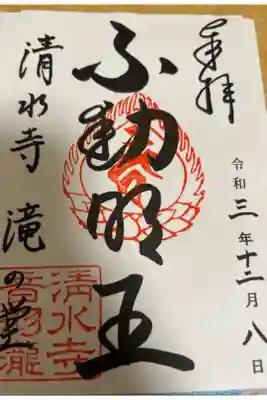 奉拝
令和三年十二月八日
不動明王
清水寺 滝の堂
清水寺
音羽瀧